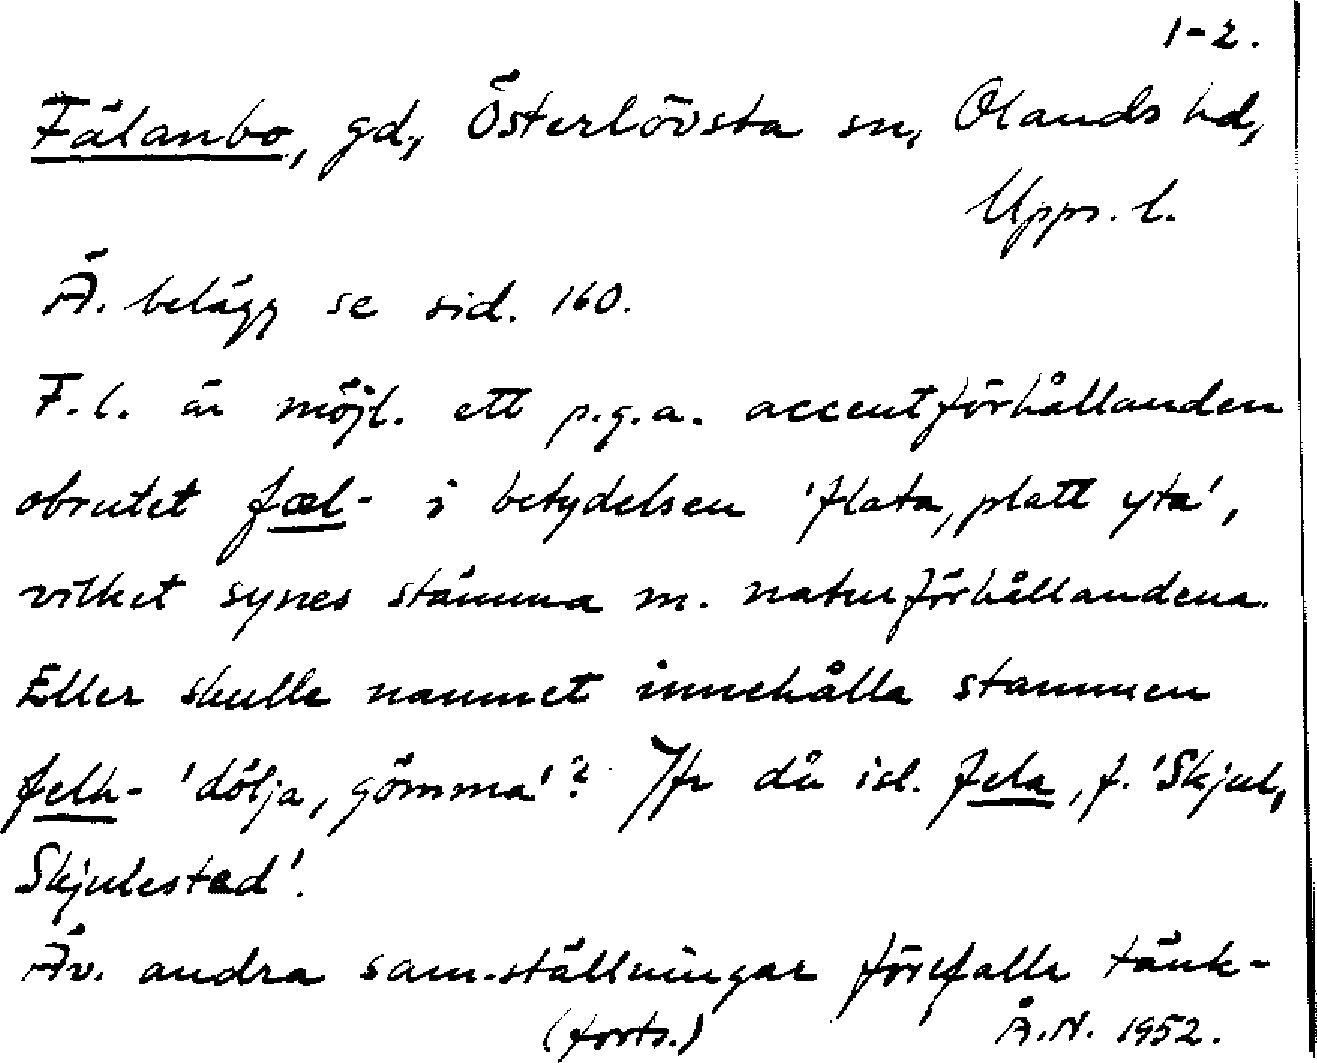 1-2.
Fälanbo, gd, Österlövsta sn, Olands hd,
Upps. l.
Ä. belägg se sid. 160.
F.l. är möjl. ett p.g.a. accentförhållanden
obrutet fæl- i betydelsen 'flata, platt yta',
vilket synes stämma m. naturförhållandena.
Eller skulle namnet innehålla stammen
felh- 'dölja, gömma'? Jfr då isl. fela, f. 'Skjul,
Skjulested'.
Äv. andra sam.ställningar förefalla tänk-
(forts.) Å.N. 1952.